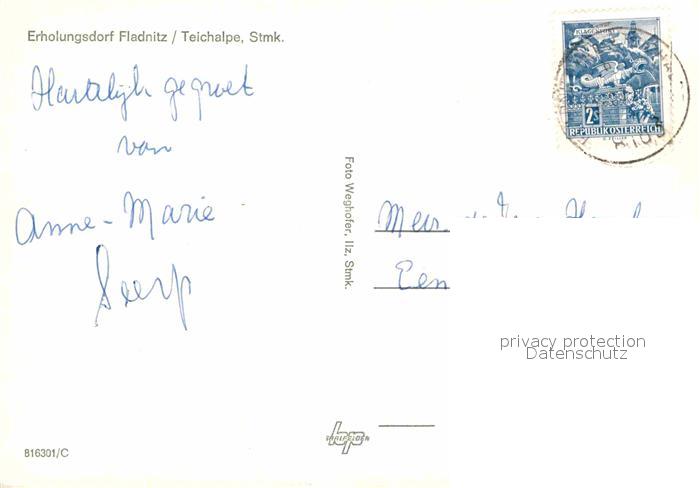 Erholungsdorf Fladnitz / Teichalpe, Stmk.
Hartelijk gegroet
van
Anne-Marie
KLAGENFURT
2S
REPUBLIK ÖSTERREICH
Foto Weghofer, Ilz, Stmk.
Een
privacy protection
Datenschutz
bp
SAALFELDEN
816301/C